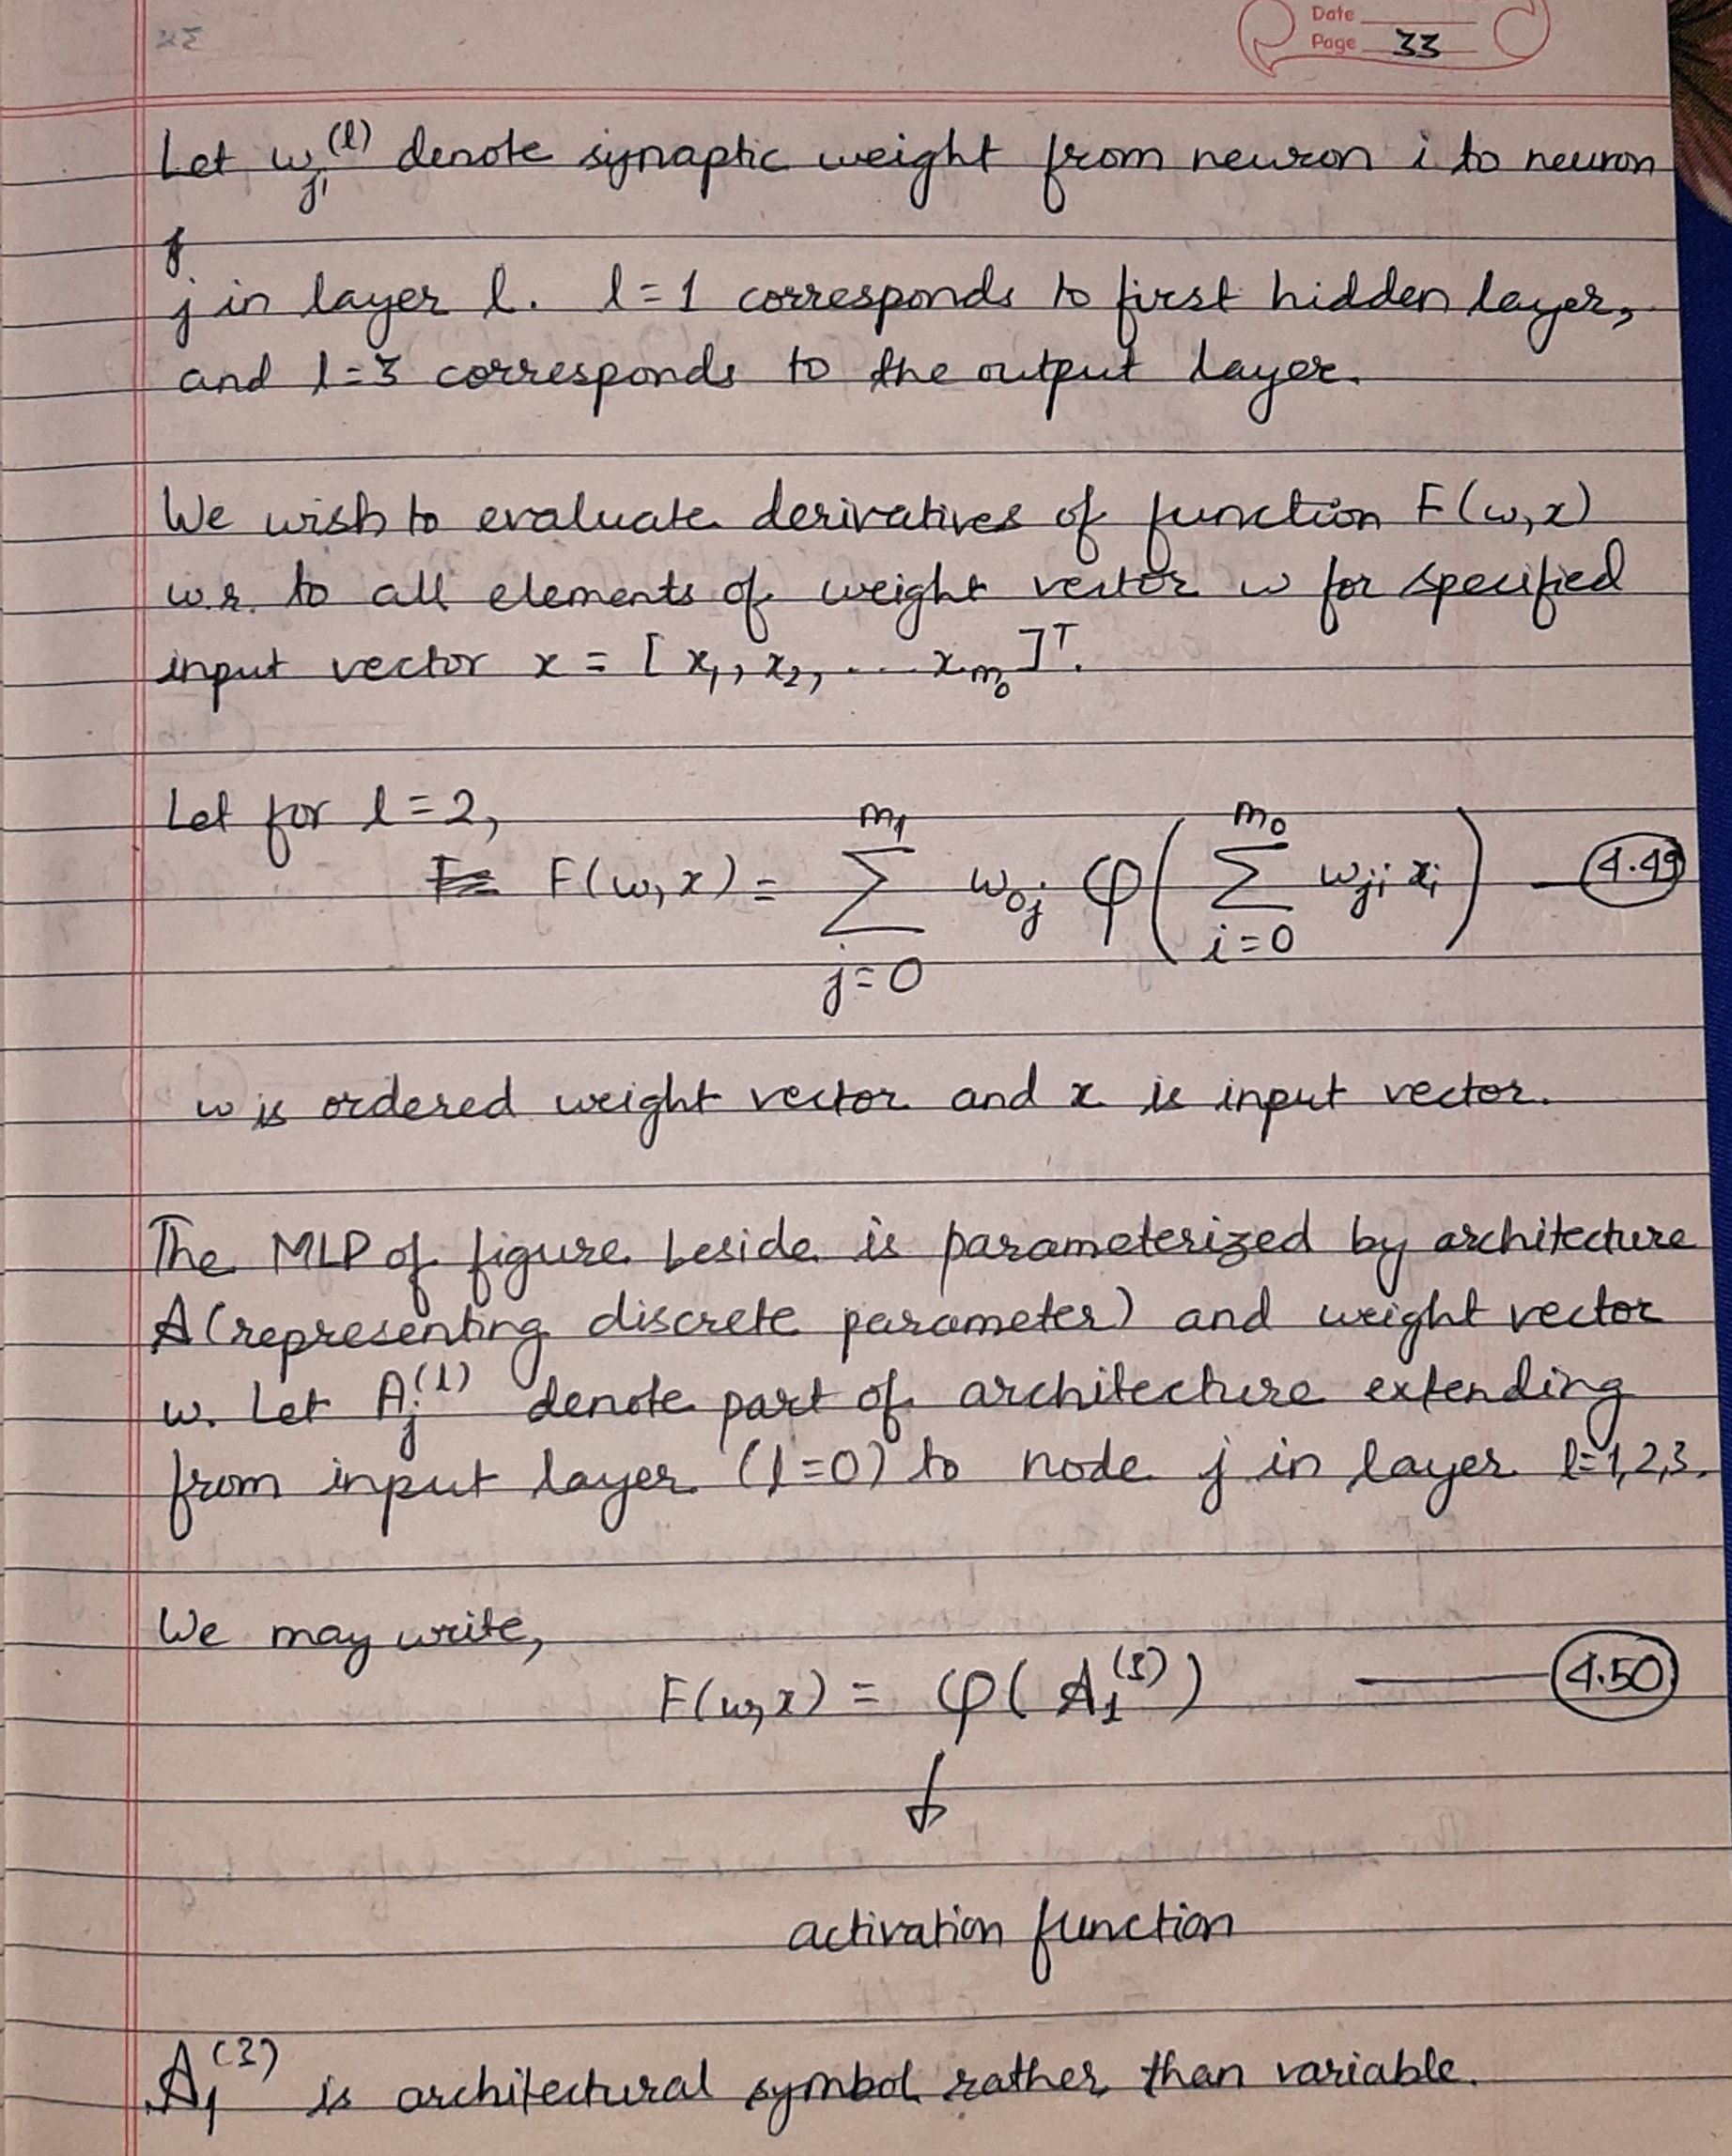 Date
Page 33
Let w_ji^(l) denote synaptic weight from neuron i to neuron
j in layer l. l=1 corresponds to first hidden layer,
and l=3 corresponds to the output layer.
We wish to evaluate derivatives of function F(w,x)
w.r. to all elements of weight vector w for specified
input vector x = [x₁, x₂, .... x_m₀]ᵀ.
Let for l=2,
F(w,x) = Σ_{j=0}^{m₁} w_oj φ( Σ_{i=0}^{m₀} w_ji x_i ) — (4.49)
w is ordered weight vector and x is input vector.
The MLP of figure beside is parameterized by architecture
A (representing discrete parameter) and weight vector
w. Let A_j^(l) denote part of architecture extending
from input layer (l=0) to node j in layer l=1,2,3.
We may write,
F(w,x) = φ(A₁^(3)) — (4.50)
↓
activation function
A₁^(3) is architectural symbol rather than variable.